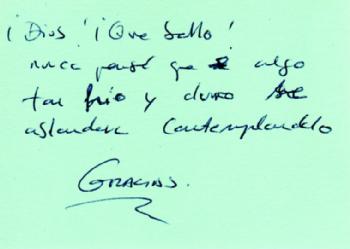 ¡Dios! ¡Que bello!
nunca pensé que algo
tan frio y duro se
ablandara contemplandolo
GRACIAS.